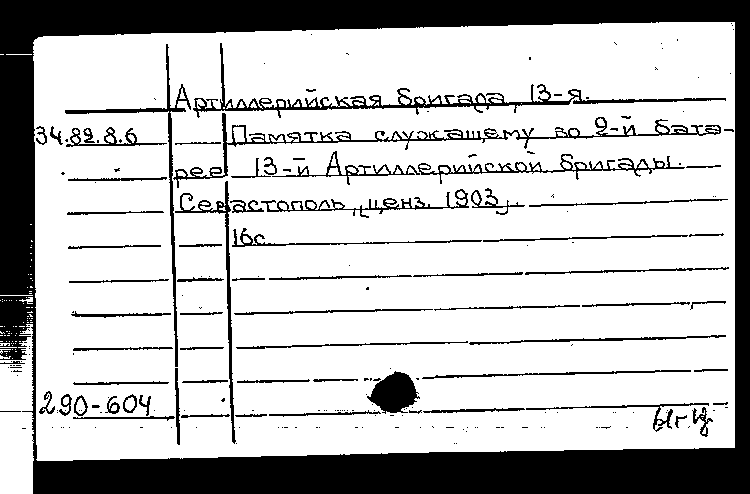 Артиллерийская бригада, 13-я.
34.82.8.6 Памятка служащему во 2-й бата-
рее 13-й Артиллерийской бригады.
Севастополь, ценз. 1903.
16с.
290-604